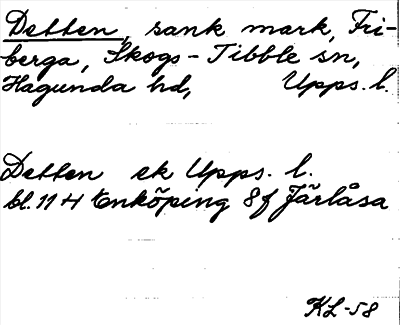 Detten, sank mark, Fri-
berga, Skogs-Tibble sn,
Hagunda hd, Upps. l.
Detten ek Upps. l.
bl. 11 H Enköping 8f Järlåsa
KL-58